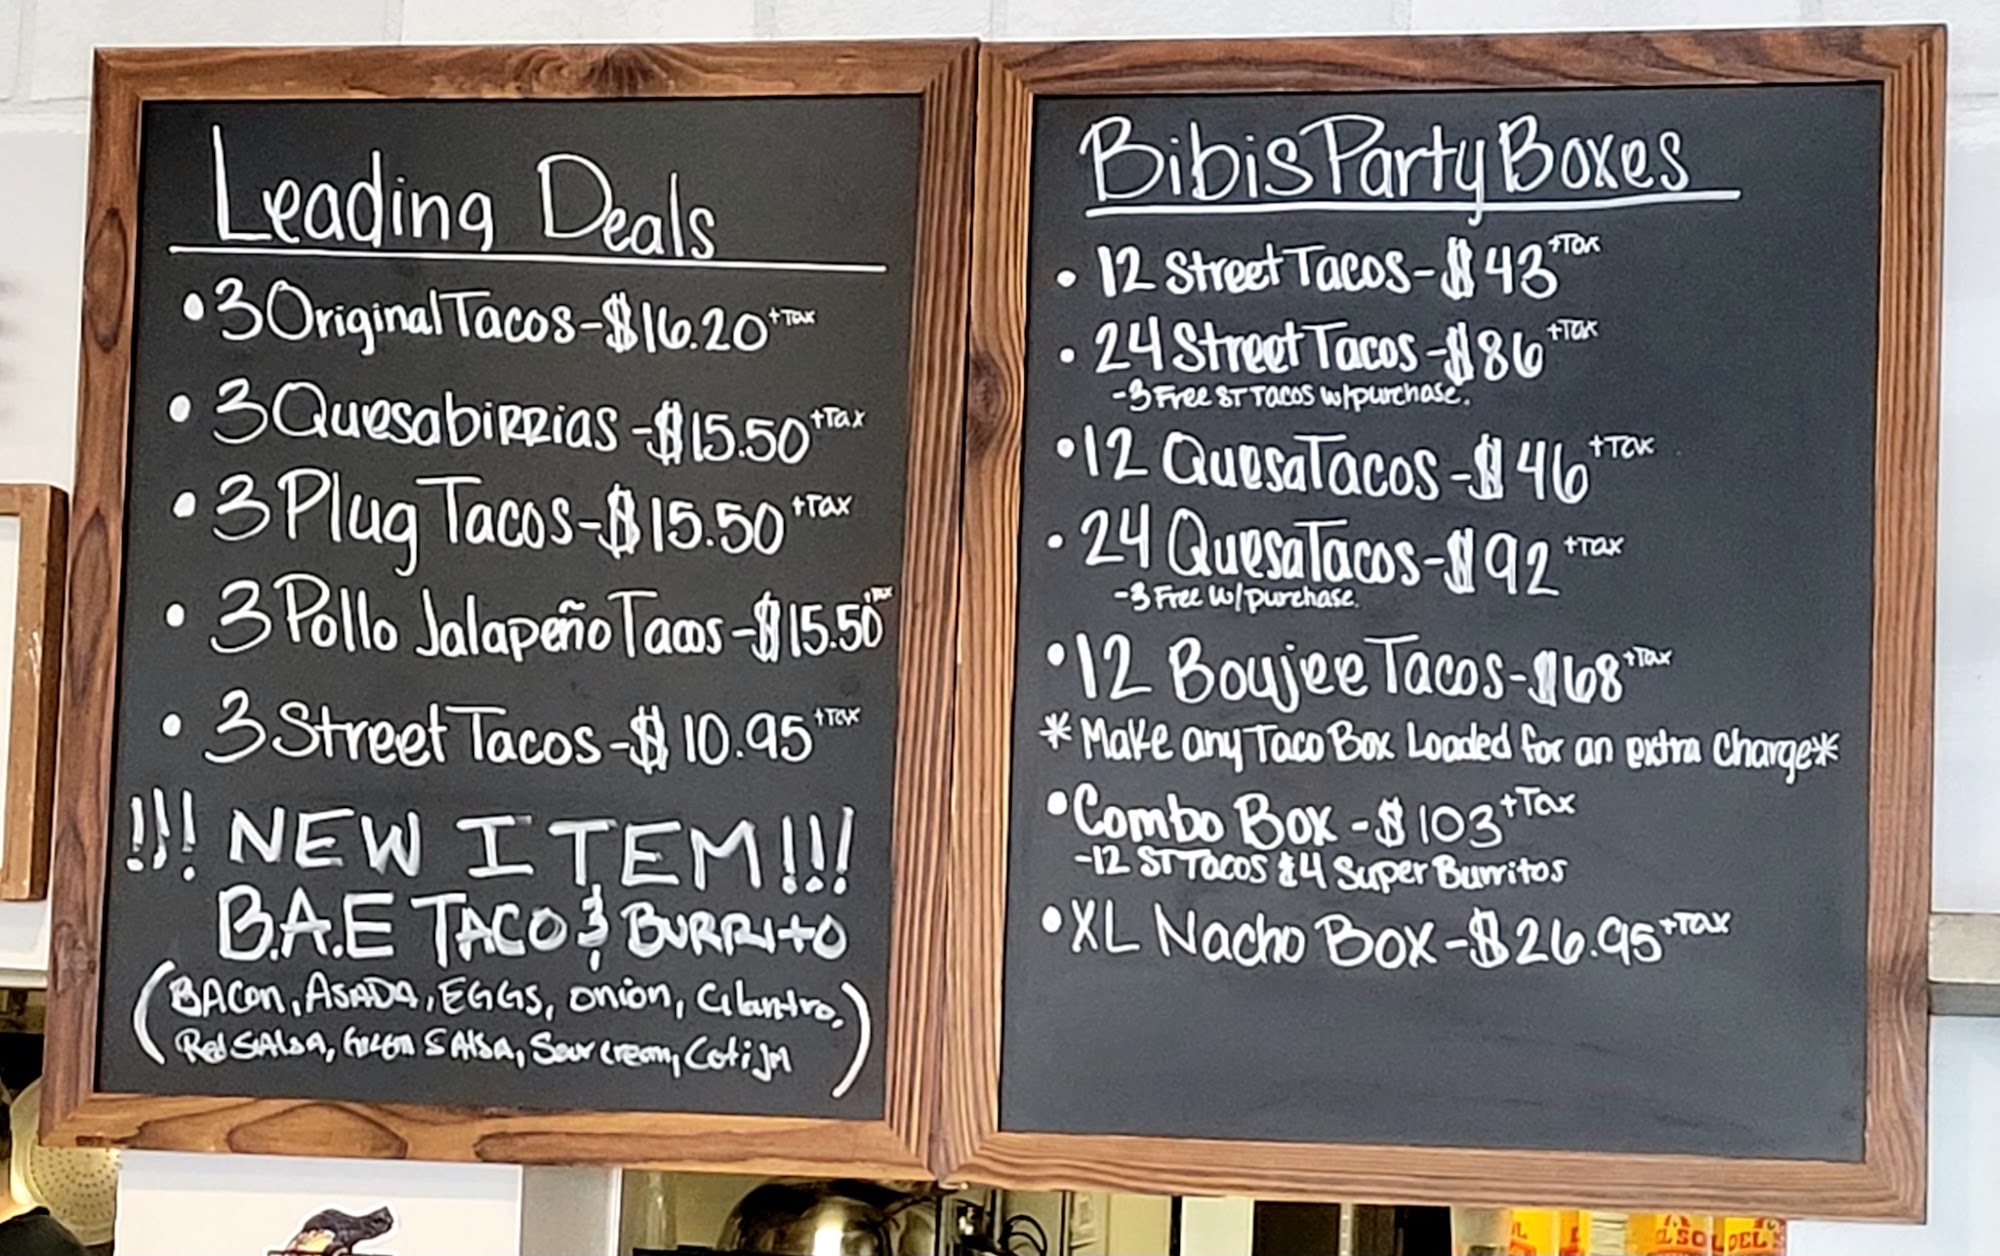 Leading Deals
• 3 Original Tacos - $16.20 +Tax
• 3 Quesabirrias - $15.50 +Tax
• 3 Plug Tacos - $15.50 +Tax
• 3 Pollo Jalapeño Tacos - $15.50 +Tax
• 3 Street Tacos - $10.95 +Tax
!!! NEW ITEM !!!
B.A.E TACO & BURRITO
(BACon, ASADA, EGGS, onion, Cilantro,
Red SAlsA, Green SAlsA, Sour Cream, Cotija)
Bibis Party Boxes
• 12 Street Tacos - $43 +Tax
• 24 Street Tacos - $86 +Tax
- 3 Free ST Tacos w/purchase.
• 12 QuesaTacos - $46 +Tax
• 24 QuesaTacos - $92 +Tax
- 3 Free w/purchase.
• 12 Boujee Tacos - $68 +Tax
* Make any Taco Box Loaded for an extra Charge *
• Combo Box - $103 +Tax
- 12 ST Tacos & 4 Super Burritos
• XL Nacho Box - $26.95 +Tax